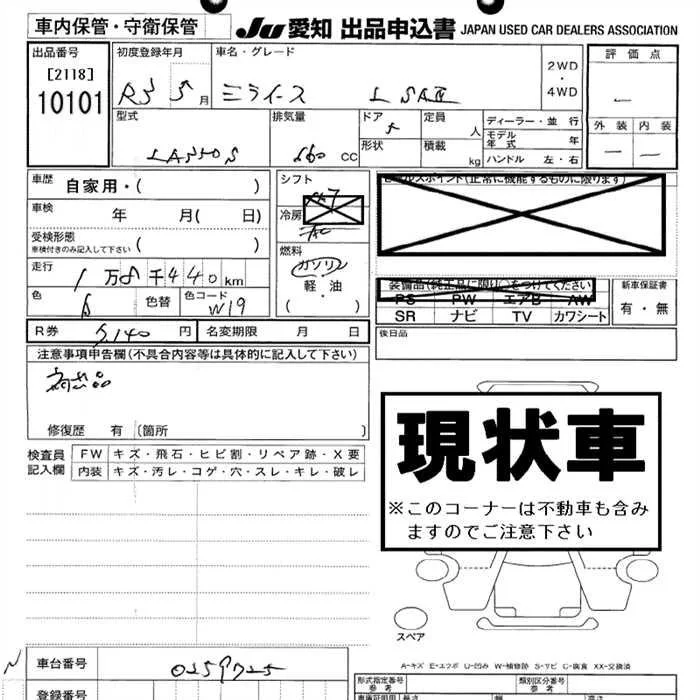 車内保管・守衛保管
JU 愛知 出品申込書 JAPAN USED CAR DEALERS ASSOCIATION
出品番号
[2118]
10101
初度登録年月
R5 5月
車名・グレード
ミライース L SAⅢ
2WD
・
4WD
評価点
外装 内装
型式
LA350S
排気量
660 CC
ドア
5
形状
定員 人
積載 kg
ディーラー・並行
モデル年式 年
ハンドル 左・右
車歴 自家用・( )
車検 年 月( 日)
受検形態
車検付きのみ記入して下さい ( )
走行 1万8千440km
色 色替 色コード W19
シフト
冷房
AC
燃料
ガソリン
軽油
( )
セールスポイント(正常に機能するものに限ります)
装備品(純正品に限り○をつけてください)
PS PW エアB AW
SR ナビ TV カワシート
新車保証書
有・無
R券 5,140円
名変期限 月 日
後日品
注意事項申告欄(不具合内容等は具体的に記入して下さい)
商品
修復歴 有(箇所 )
検査員記入欄
FW キズ・飛石・ヒビ割・リペア跡・X要
内装 キズ・汚レ・コゲ・穴・スレ・キレ・破レ
現状車
※このコーナーは不動車も含み
ますのでご注意下さい
スペア
A-キズ E-エクボ U-凹み W-補修跡 S-サビ C-腐食 XX-交換済
車台番号 0259725
登録番号
形式指定番号
参考
類別区分番号
参考